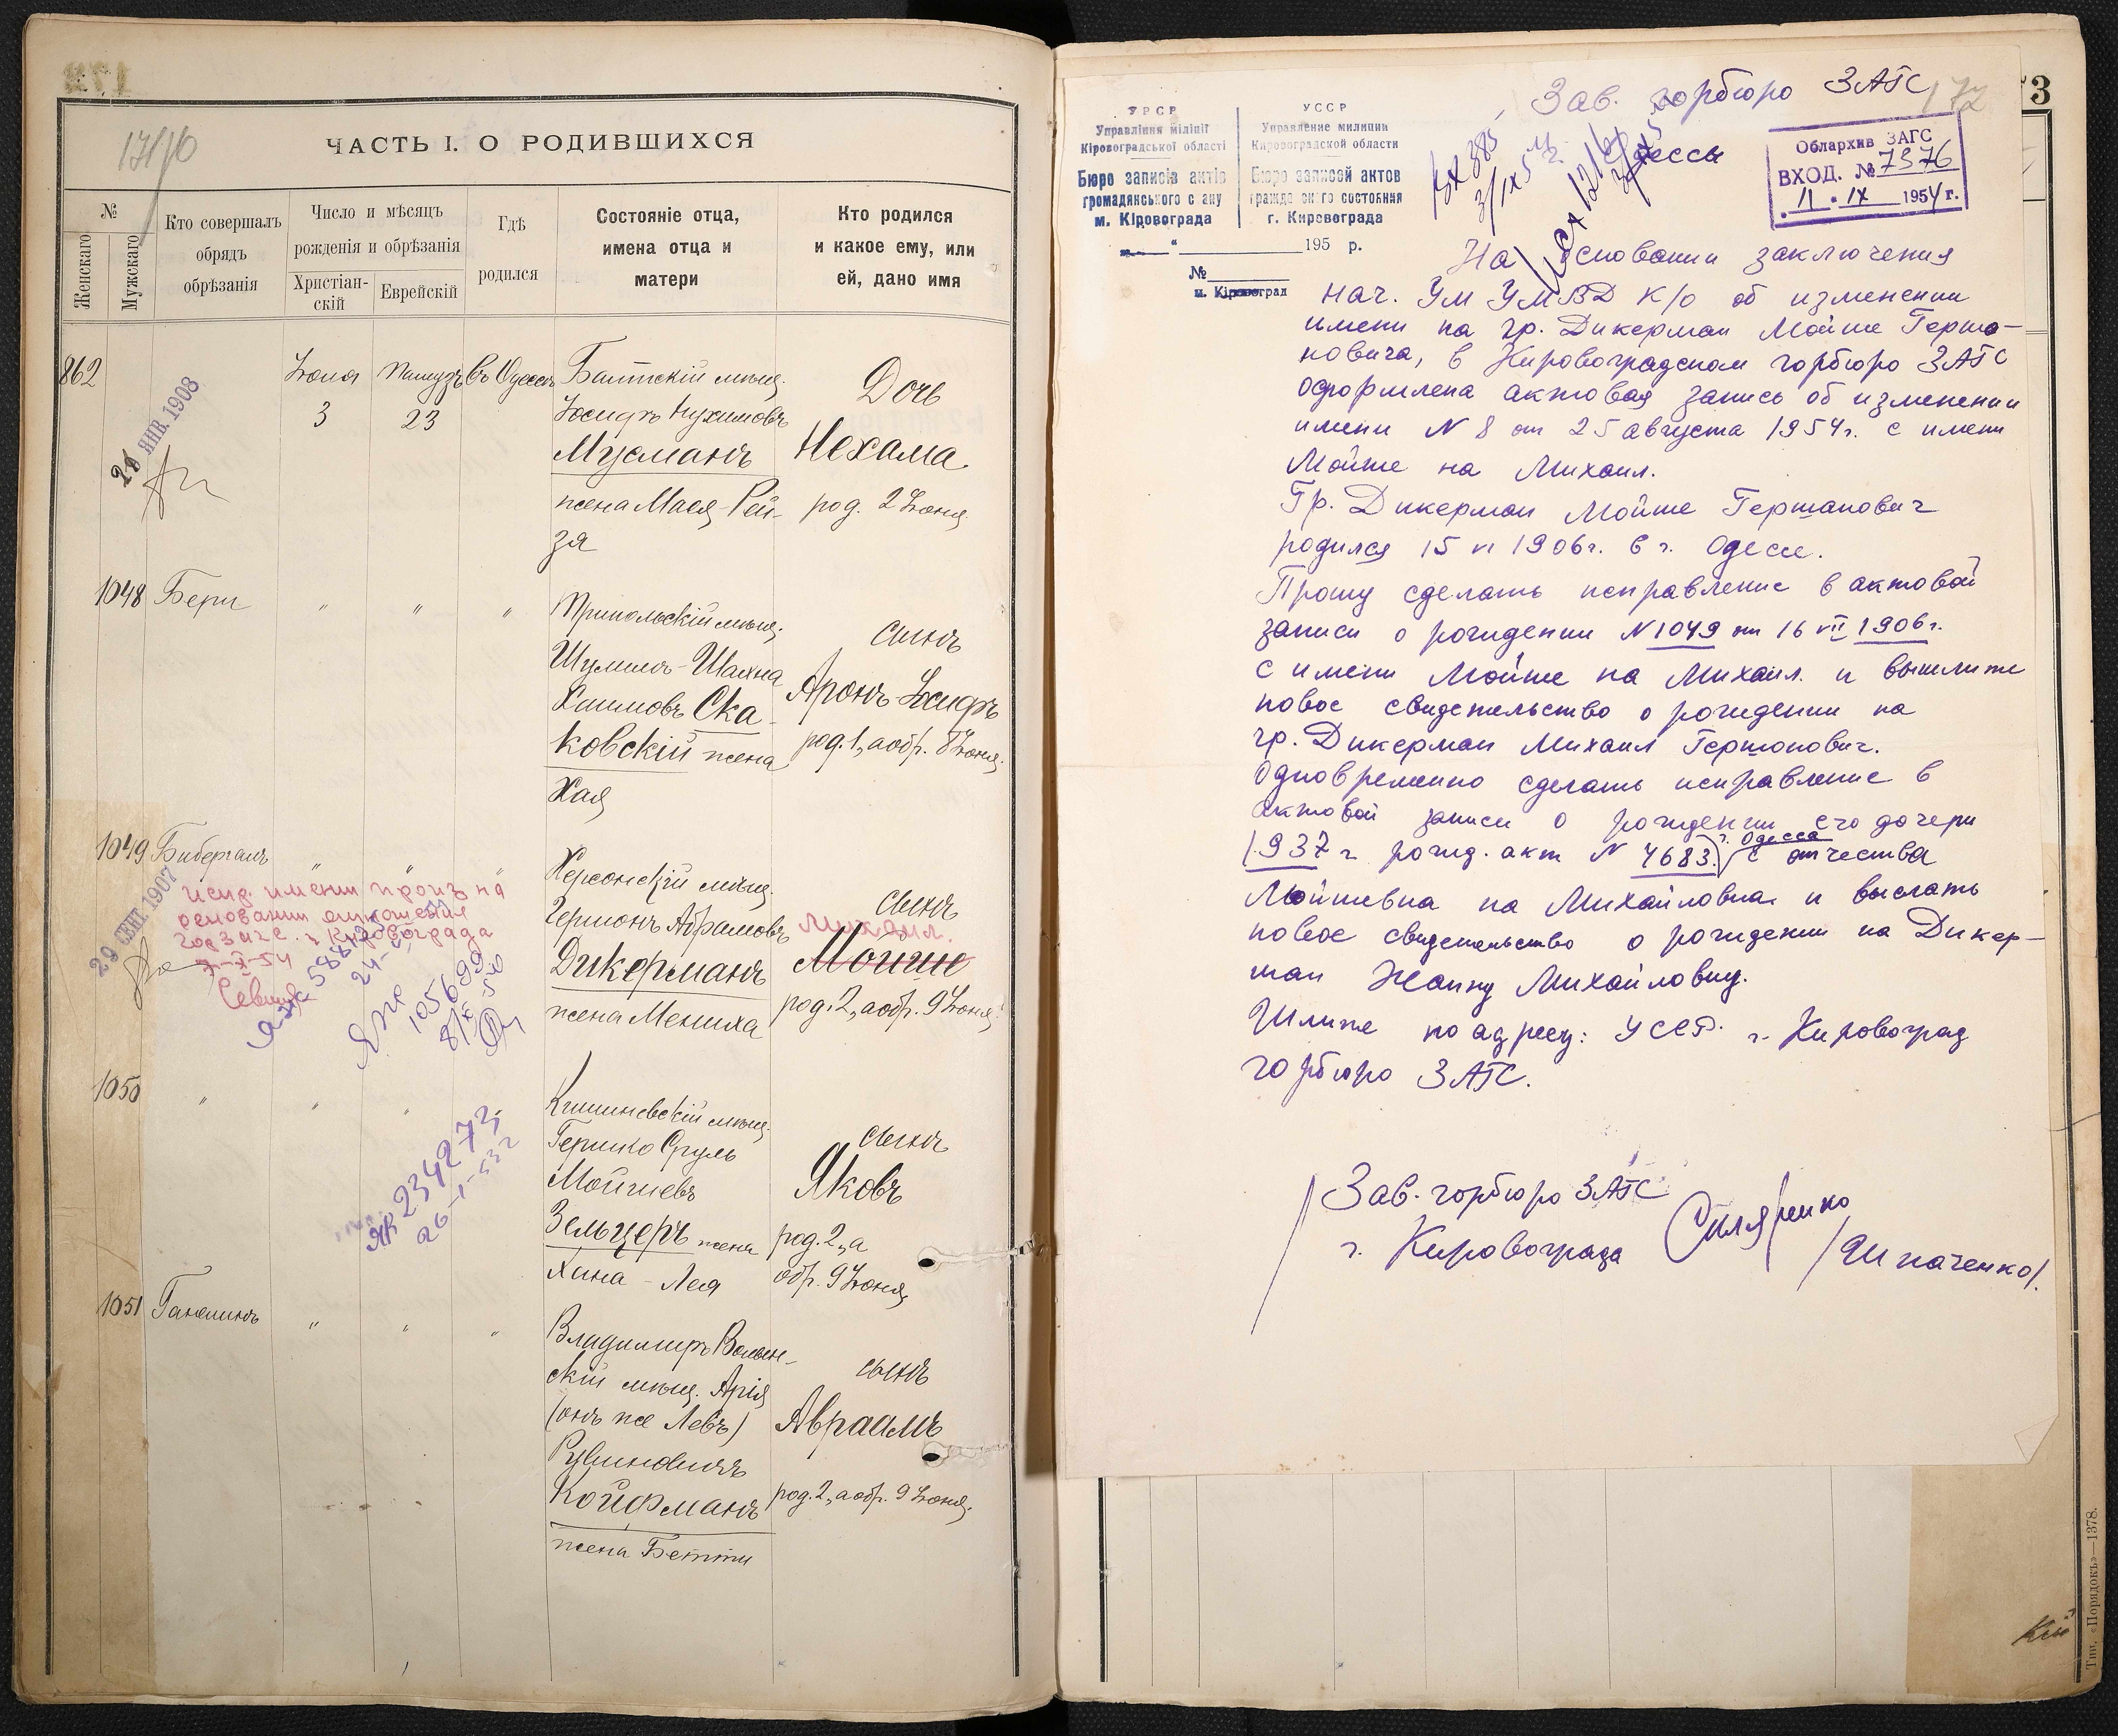 17/10
ЧАСТЬ I. О РОДИВШИХСЯ
№
Женскаго
Мужскаго
Кто совершалъ
обрядъ
обрѣзанія
Число и мѣсяцъ
рожденія и обрѣзанія
Христіан-
скій
Еврейскій
Гдѣ
родился
Состояніе отца,
имена отца и
матери
Кто родился
и какое ему, или
ей, дано имя
862
Іюня
3
23
въ Одессѣ
Балтскій мѣщ.
Іосифъ Нухимовъ
Мусманъ
жена Мася-Рей-
зя
Дочь
Нехама
род. 2 Іюня
ЯНВ. 1908
1048
Бери
"
"
"
Шулимъ-Шахна
Хаимовъ Ска-
ковскій жена
Хая
сынъ
Аронъ-Іосифъ
род. 1, а обр. 8 Іюня.
1049
"
"
"
29 СЕНТ. 1907
испр. имени произ на
основании
г. Кировограда
Херсонскій мѣщ.
Гершонъ Абрамовъ
Дикерманъ
жена Мениха
сынъ
Михаил.
Мойше
род. 2, а обр. 9 Іюня.
105699
1050
"
"
"
ЯК 234273
Кишиневскій мѣщ.
Гершко Сруль
Мойшевъ
Зельцеръ жена
Хина-Лея
сынъ
Яковъ
род. 2, а
обр. 9 Іюня
1051
"
"
"
Владимиръ Волын-
скій мѣщ. Арія
(онъ же Левъ)
Рувиновичъ
Койфманъ
жена Бетти
сынъ
Авраамъ
род. 2, а обр. 9 Іюня.
УРСР
Управління міліції
Кіровоградської області
Бюро записів актів
громадянського стану
м. Кіровограда
УССР
Управление милиции
Кировоградской области
Бюро записей актов
гражданского состояния
г. Кировограда
195 р.
№
м. Кіровоград
172
Зав. горбюро ЗАГС
Одессы
Облархив ЗАГС
ВХОД. № 7376
11 . IX 1954 г.
На основании заключения
нач. УМ УМВД К/О об изменении
имени на гр. Дикерман Мойше Гершо-
новича, в Кировоградском горбюро ЗАГС
оформлена актовая запись об изменении
имени N 8 от 25 августа 1954 г. с имени
Мойше на Михаил.
Гр. Дикерман Мойше Гершанович
родился 15 VI 1906 г. в г. Одессе.
Прошу сделать исправление в актовой
записи о рождении N 1049 от 16 VII 1906 г.
с имени Мойше на Михаил. и вышлите
новое свидетельство о рождении на
гр. Дикерман Михаил Гершонович.
Одновременно сделать исправление в
актовой записи о рождении его дочери
1937 г рожд. акт N 4683. г. Одесса с отчества
Мойшевна на Михайловна и выслать
новое свидетельство о рождении на Дикер-
ман Жанну Михайловну.
Шлите по адресу: УССР. г. Кировоград
горбюро ЗАГС.
Зав. горбюро ЗАГС
г. Кировограда
/Шпаченко/.
73
кій
Тип. «Порядокъ»—1378.